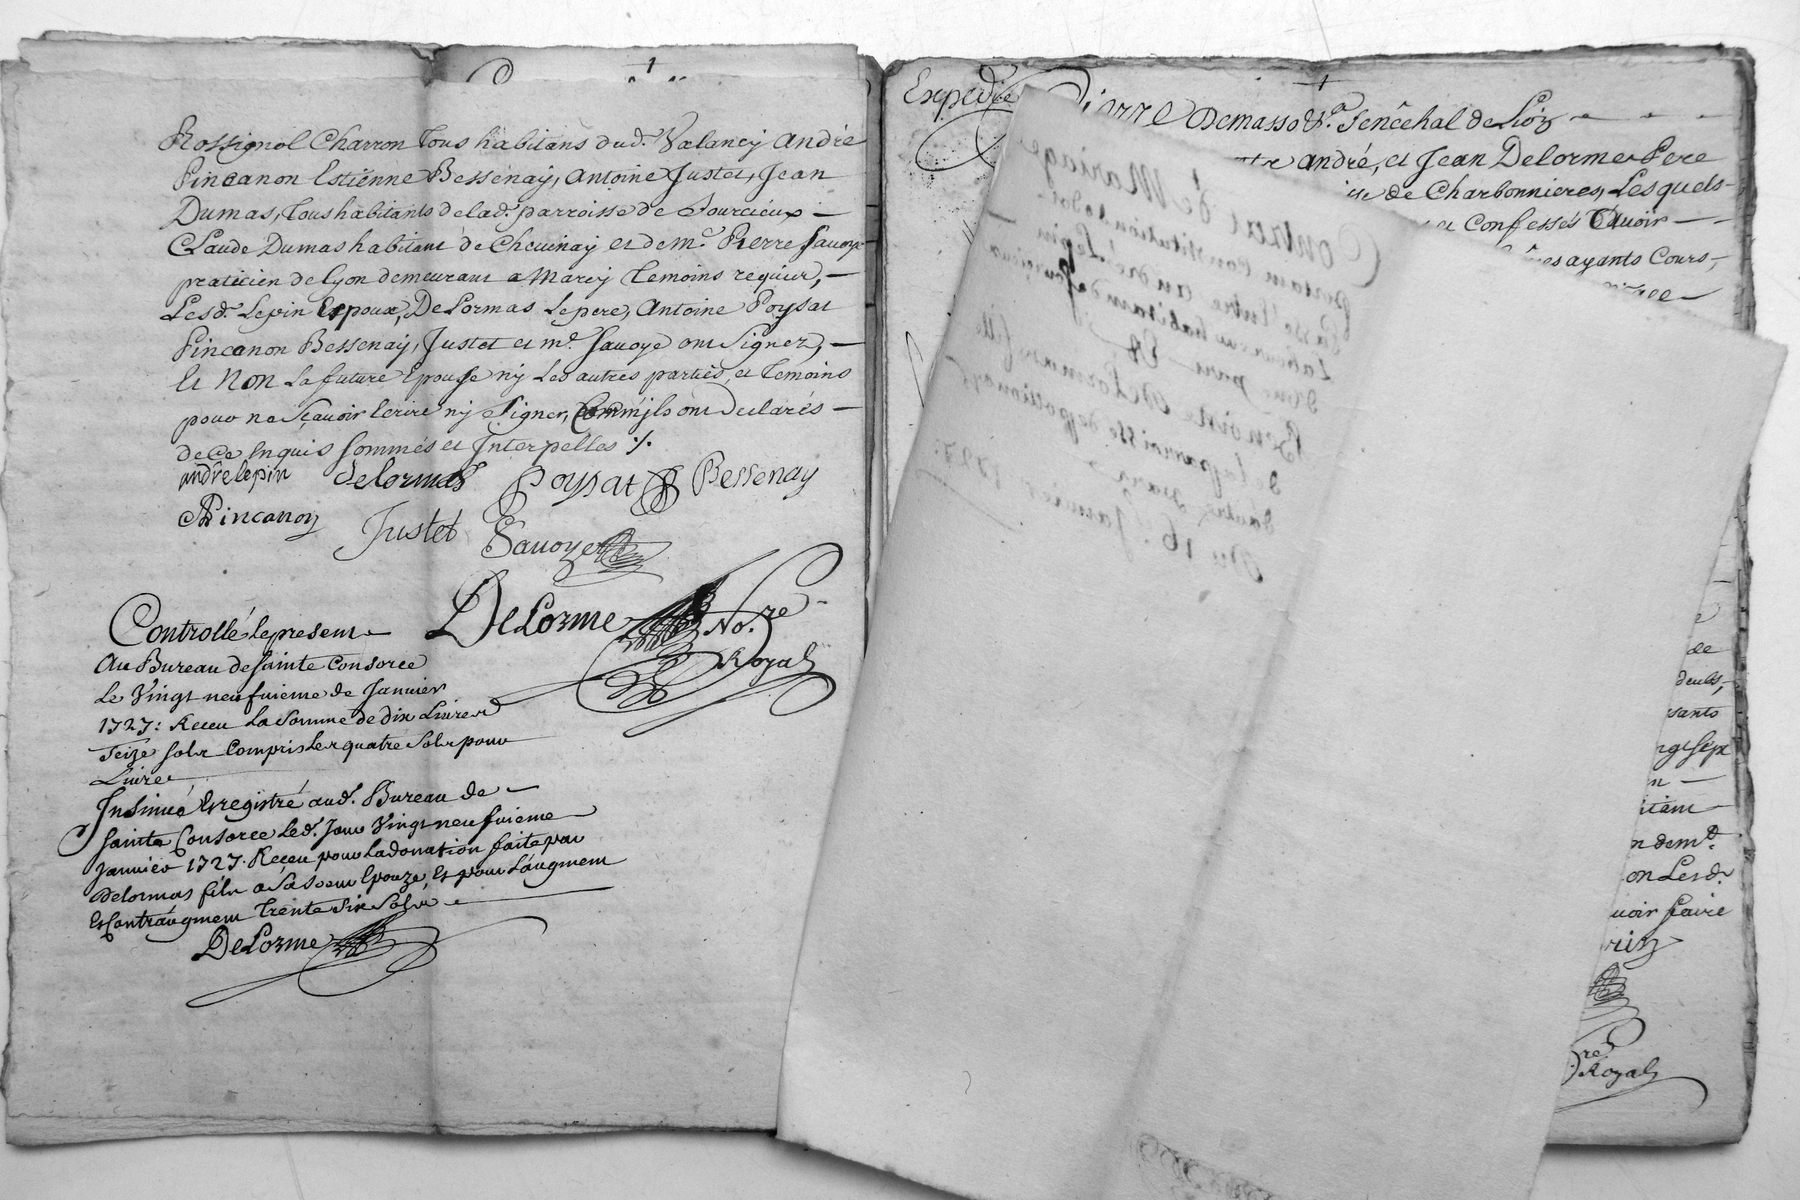 Rossignol Charron Tous habitans dud. Valancy André
Pincanon Estienne Bessenay, Antoine Justet, Jean
Dumas, Tous habitants de lad. parroisse de Sourcieux —
Claude Dumas habitant de Cheuinay et de mᵉ Pierre Sauoye
praticien de Lyon demeurant a Marcy Temoins requis, —
Lesd. Lepin Expoux, DeLormas Lepere, Antoine Poysat
Pincanon Bessenay, Justet et mᵉ Sauoye ont Signez, —
Et Non La future Epouse ny Les autres parties, et Temoins
pour ne Sçauoir Ecrire ny Signer, Comm'jls ont Declarés —
de ce Enquis Sommés et Interpelles ./.
andré lepin delormas Poysat Bessenay
Pincanon Justet Sauoye
DeLorme No.re
Royal
Controllé le present
Au Bureau de Sainte Consorce
Le Vingt neufuieme de Januier
1727: Receu La Somme de dix Liures
Seize Sols Compris Les quatre Sols pour
Liure
Insinué Enregistré aud. Bureau de —
Sainte Consorce Led. Jour Vingt neufuieme
Januier 1727. Receu pour La donation faite par
Delormas fils a Sa Soeur Epouze, Et pour L'augment
Et Contraugment Trente Six Sols
DeLorme
Expedié
Pierre Demasso Sr. Senéchal de Lion
André, et Jean Delorme Pere
de Charbonnieres, Lesquels
et Confessés Auoir —
ayants Cours,
Contrat de Mariage
Portant Constitution de dot
Passé Entre André Lepin
Laboureur habitant de Sourcieux
d'une part Et
Benoiste Delormas fille
de la parroisse de pollionay
d'autre
Du 16. Januier 1727.
de
deubs,
Sept
n —
n de mᵉ
on Lesd.
uoir faire
re
Royal